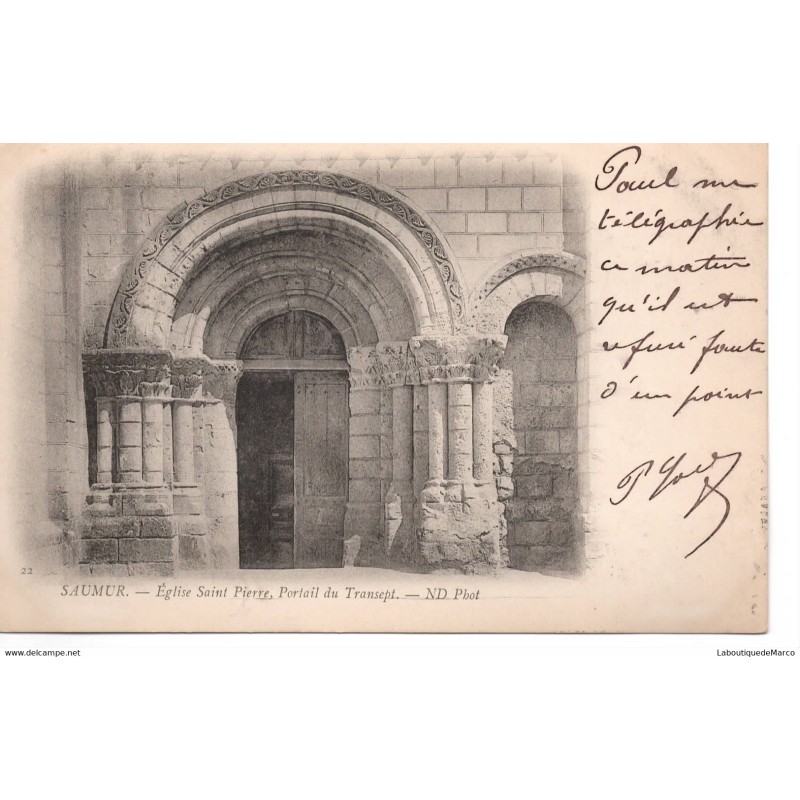 Paul me
télégraphie
ce matin
qu'il est
refusé faute
d'un point
22
SAUMUR. — Église Saint Pierre, Portail du Transept. — ND Phot
www.delcampe.net
LaboutiquedeMarco